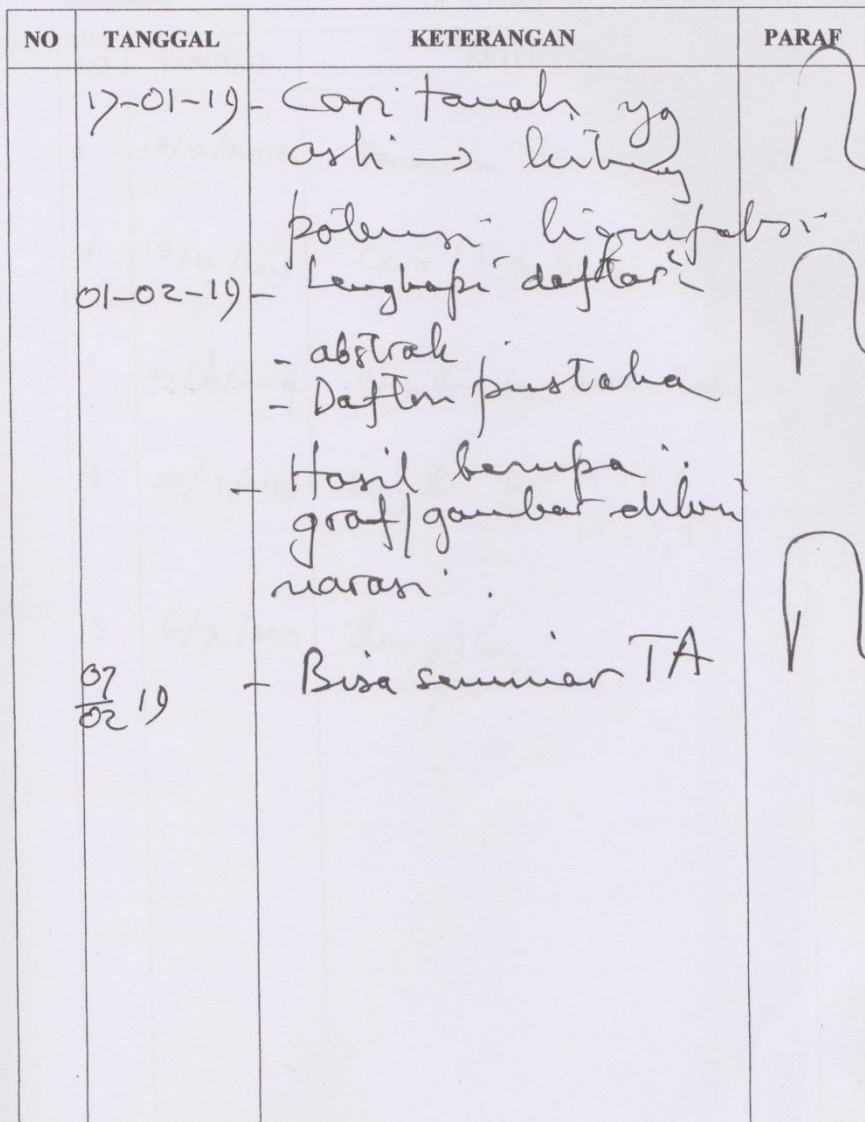 NO TANGGAL KETERANGAN PARAF
17-01-19 - Cari tanah yg
asli → hitung
potensi liquifaksi
01-02-19 - Lengkapi daftar i
- abstrak
- Daftar pustaka
- Hasil berupa :
graf/gambar diberi
narasi .
07/02 19 - Bisa seminar TA